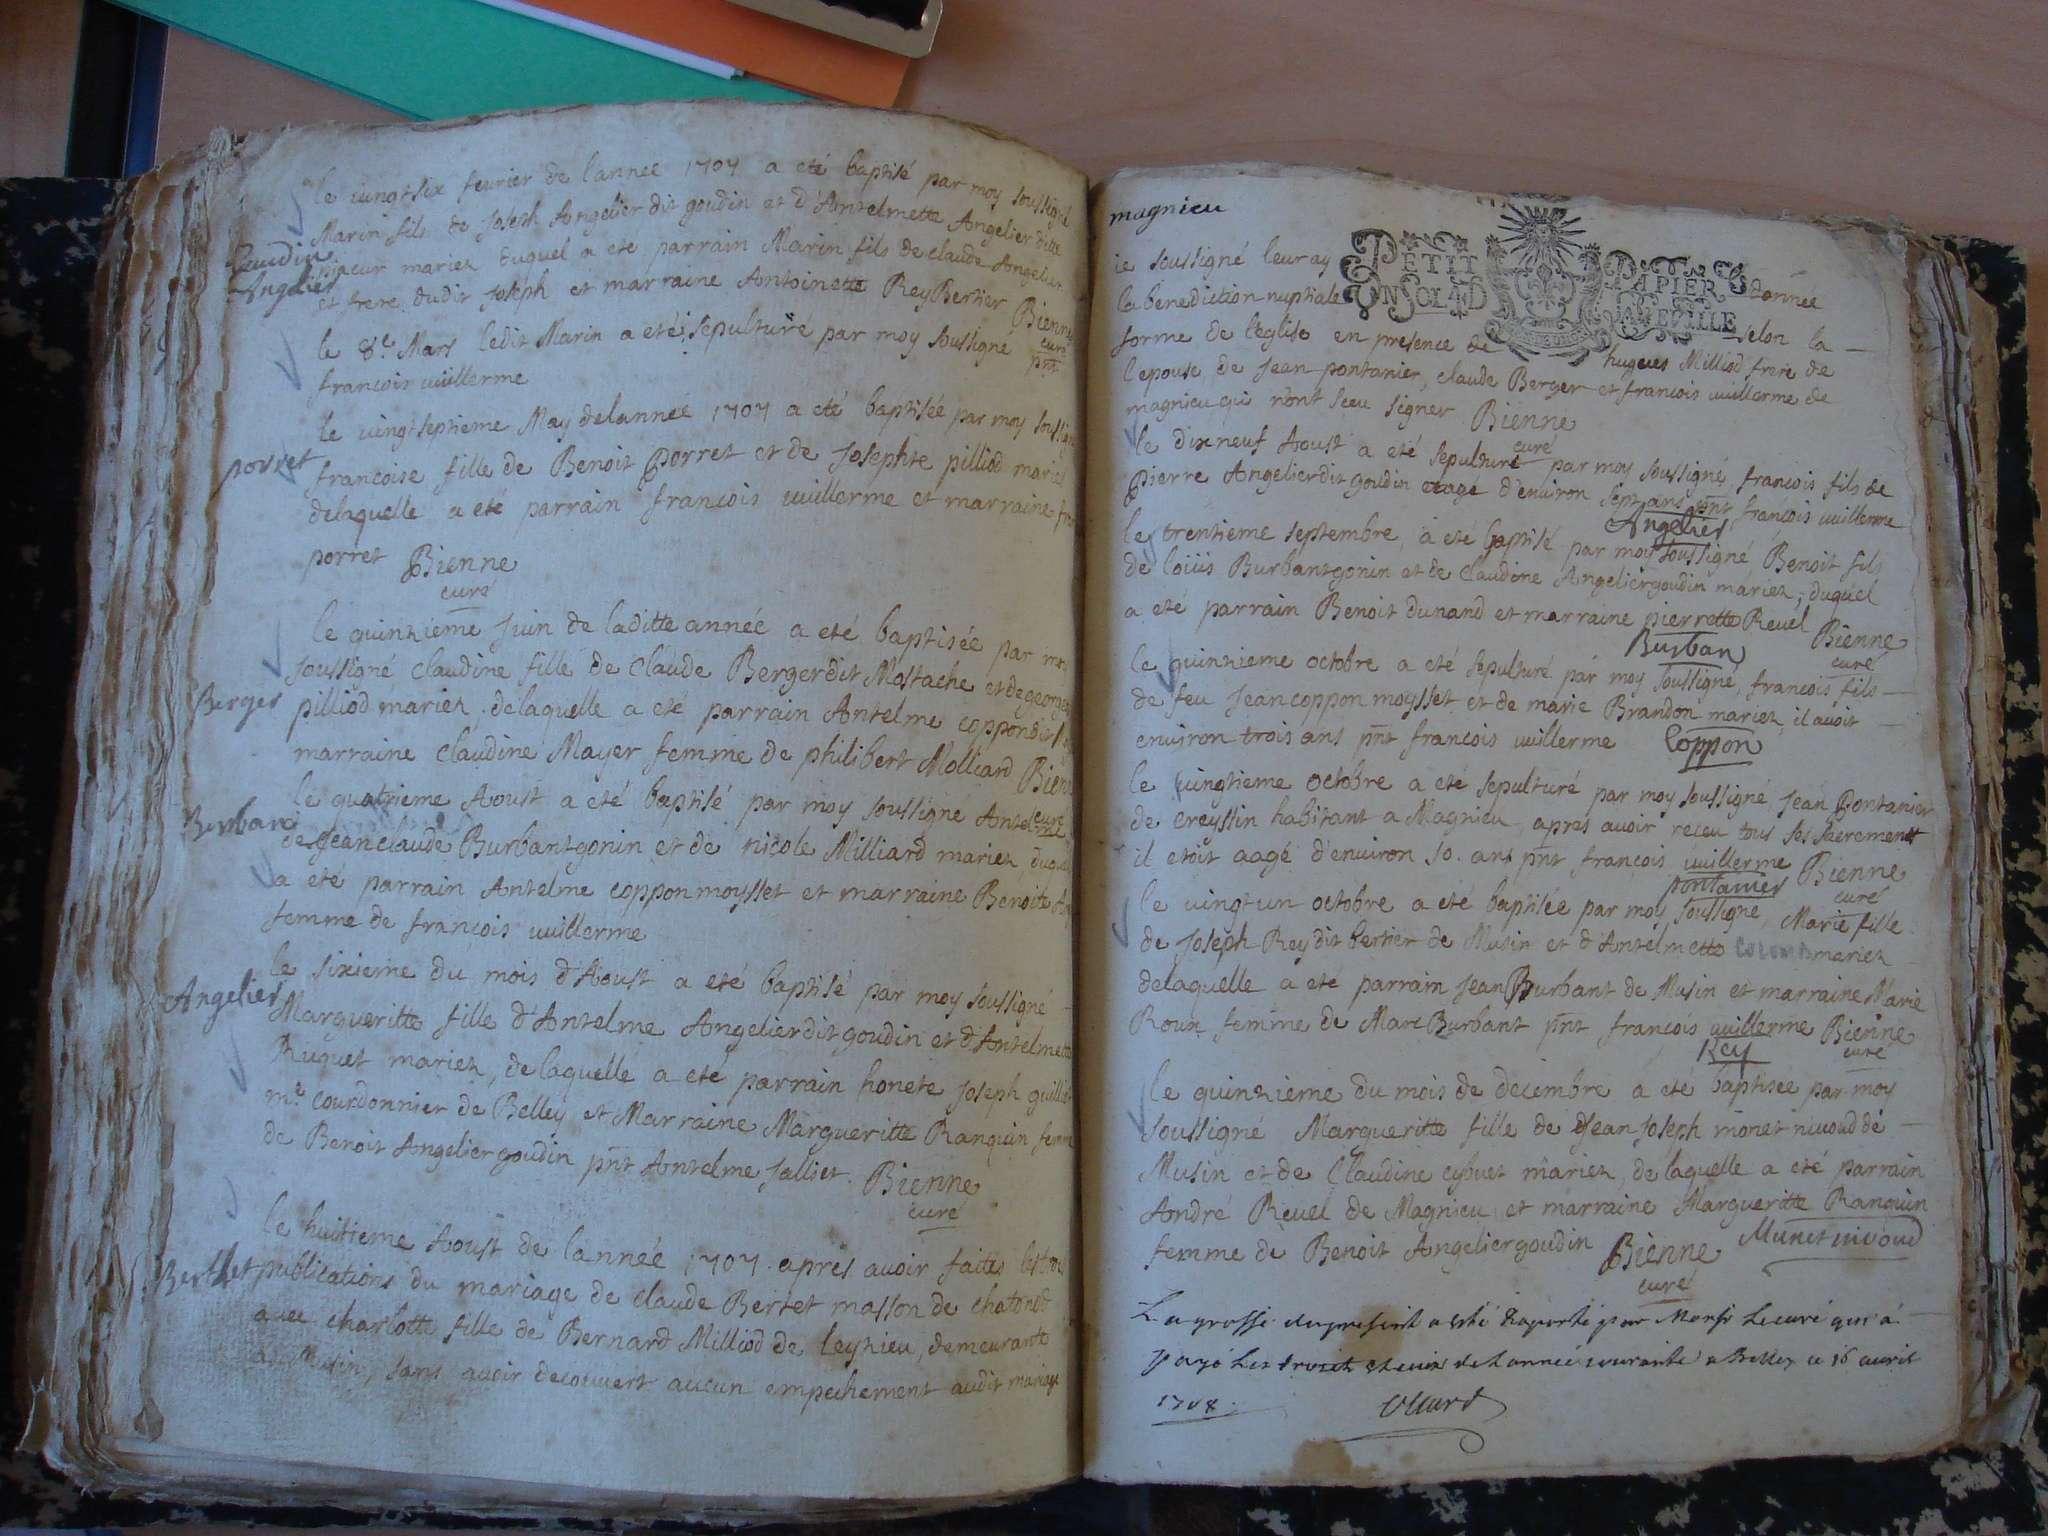 le vingt six fevrier de l'année 1707 a eté baptisé par moy soussigné
Marin fils de Joseph Angelier dit goudin et d'Antelmette Angelier ditte
mariez duquel a eté parrain Marin fils de claude Angelier
et frere dudit Joseph et marraine Antoinette Rey Bertier Bienne
curé
Goudin
Angelier
le 8e Mars ledit Marin a eté sepulturé par moy soussigné pnt
françois vuillerme
le vingt septieme May de lannée 1707 a eté baptisée par moy soussigné
porret
francoise fille de Benoit Porret et de Josephte pilliod mariez
delaquelle a eté parrain francois vuillerme et marraine
porret Bienne
curé
le quinzieme Juin de laditte année a eté baptisée par moy
soussigné claudine fille de Claude Berger dit Mostache et de george
Berger
pilliod mariez, delaquelle a eté parrain Antelme coppon dit
marraine claudine Mayer femme de philibert Molliard Bienne
curé
le quatrieme Aoust a eté baptisé par moy soussigné Antelme
Burban
de Jean claude Burbant gonin et de nicole Milliard mariez duquel
a eté parrain Antelme coppon moysset et marraine Benoite
femme de françois vuillerme
le sixieme du mois d'Aoust a eté baptisé par moy soussigné
Angelier
Margueritte fille d'Antelme Angelier dit goudin et d'Antelmette
Ruguet mariez, delaquelle a eté parrain honete Joseph guilliet
me courdonnier de Belley et Marraine Margueritte Ranquin femme
de Benoit Angelier goudin pnt Antelme Jalliet. Bienne
curé
le huitieme Aoust de lannée 1707. apres avoir faites les trois
Berthet
publications du mariage de claude Bertet masson de chatonod
avec charlotte fille de Bernard Milliod de leyzieu, demeurante
a Musin, sans avoir decouvert aucun empechement audit mariage
magnieu
PETIT PAPIER
UN SOL LAD
LA FEVILLE
ie soussigné leur ay donnée
la benediction nuptiale selon la
forme de l'eglise en presence de hugues Milliod frere de
lepouse, de Jean pontanier, claude Berger et françois vuillerme de
magnieu qui n'ont sceu signer Bienne
curé
le dix neuf Aoust a eté sepulturé par moy soussigné françois fils de
Pierre Angelier dit goudin etage d'environ sept ans pnt françois vuillerme
Angelier
le trentieme septembre, a eté baptisé par moy soussigné Benoit fils
de loüis Burbant gonin et de claudine Angelier goudin mariez, duquel
a eté parrain Benoit dunand et marraine pierrette Revel Bienne
curé
Burban
le quinzieme octobre a eté sepulturé par moy soussigné, françois fils
de feu Jean coppon moysset et de marie Brandon mariez, il avoit
environ trois ans pnt françois vuillerme
Coppon
le vingtieme octobre a eté sepulturé par moy soussigné Jean Pontanier
de creyssin habitant a Magnieu, apres avoir receu tous ses sacrements
il etoit aagé d'environ 50. ans pnt françois vuillerme Bienne
curé
pontanier
le vingt un octobre a eté baptisée par moy soussigné, Marie fille
de Joseph Rey dit bertier de Musin et d'Antelmette COLOMB mariez
delaquelle a eté parrain Jean Burbant de Musin et marraine Marie
Roux femme de Marc Burbant pnt françois vuillerme Bienne
curé
Rey
le quinzieme du mois de decembre a eté baptisée par moy
soussigné Margueritte fille de Jean Joseph monet nivoud de
Musin et de Claudine cybuet mariez, de laquelle a eté parrain
André Revel de Magnieu et marraine Margueritte Ranquin
femme de Benoit Angelier goudin Bienne
curé
Munet nivoud
La grosse du present a esté Raporté par Monsr Le curé qui a
payé Les droits de lannée courante a Belley ce 16 avril
1708.